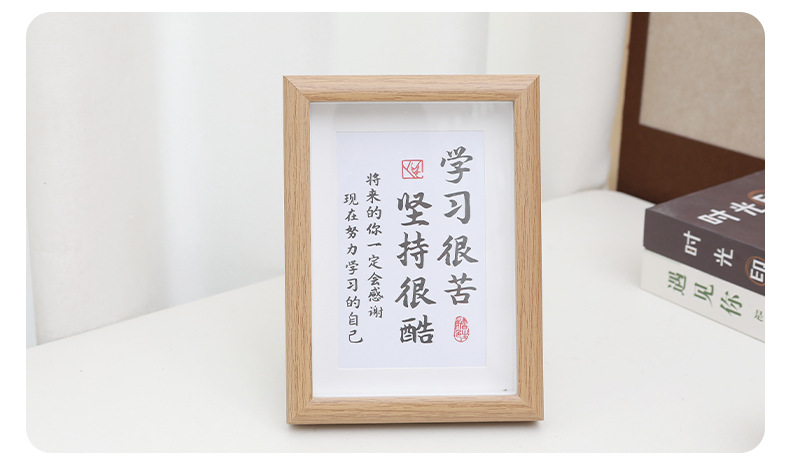 学习很苦
坚持很酷
将来的你一定会感谢
现在努力学习的自己
时光印
时光印
遇见你
是